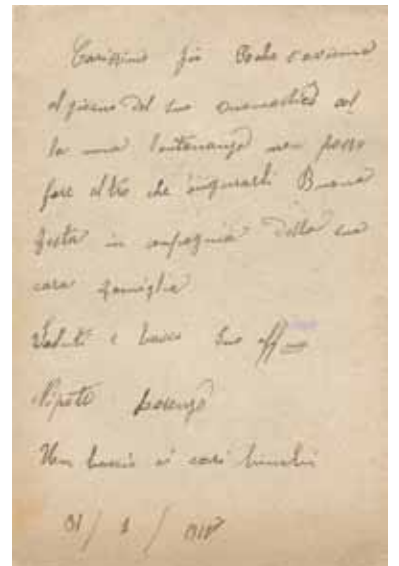 Carissimo zio
al giorno del suo onomastico col
la mia lontananza non posso
fare altro che augurarli Buona
festa in conpagnia della sua
cara famiglia
Saluti e bacci Suo aff
Nipote Lorenzo
Un baccio ai cari bimbi
31/1/918